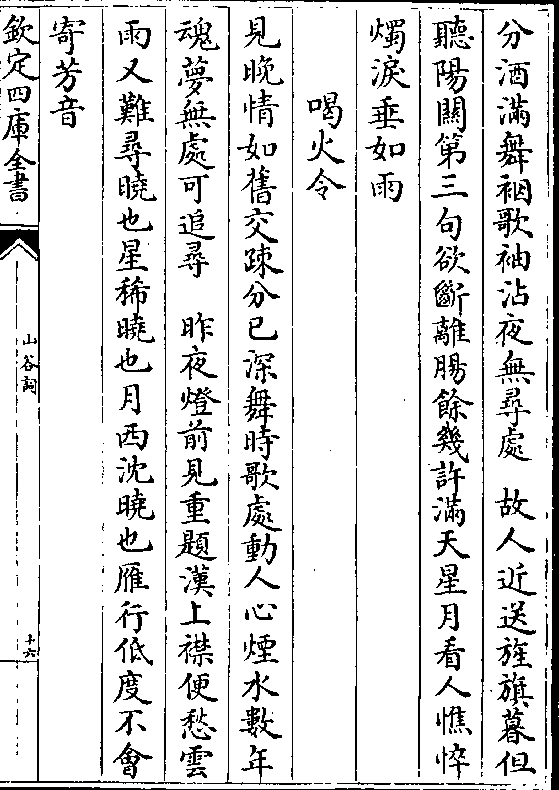 分酒滿舞裀歌袖沾夜無尋處　故人近送旌旗暮但
聽陽關第三句欲斷離腸餘幾許滿天星月看人憔悴
燭淚垂如雨
喝火令
見晚情如舊交疎分已深舞時歌處動人心煙水數年
魂夢無處可追尋　昨夜燈前見重題漢上襟便愁雲
雨又難尋曉也星稀曉也月西沈曉也雁行低度不會
寄芳音
欽定四庫全書
山谷詞
十六